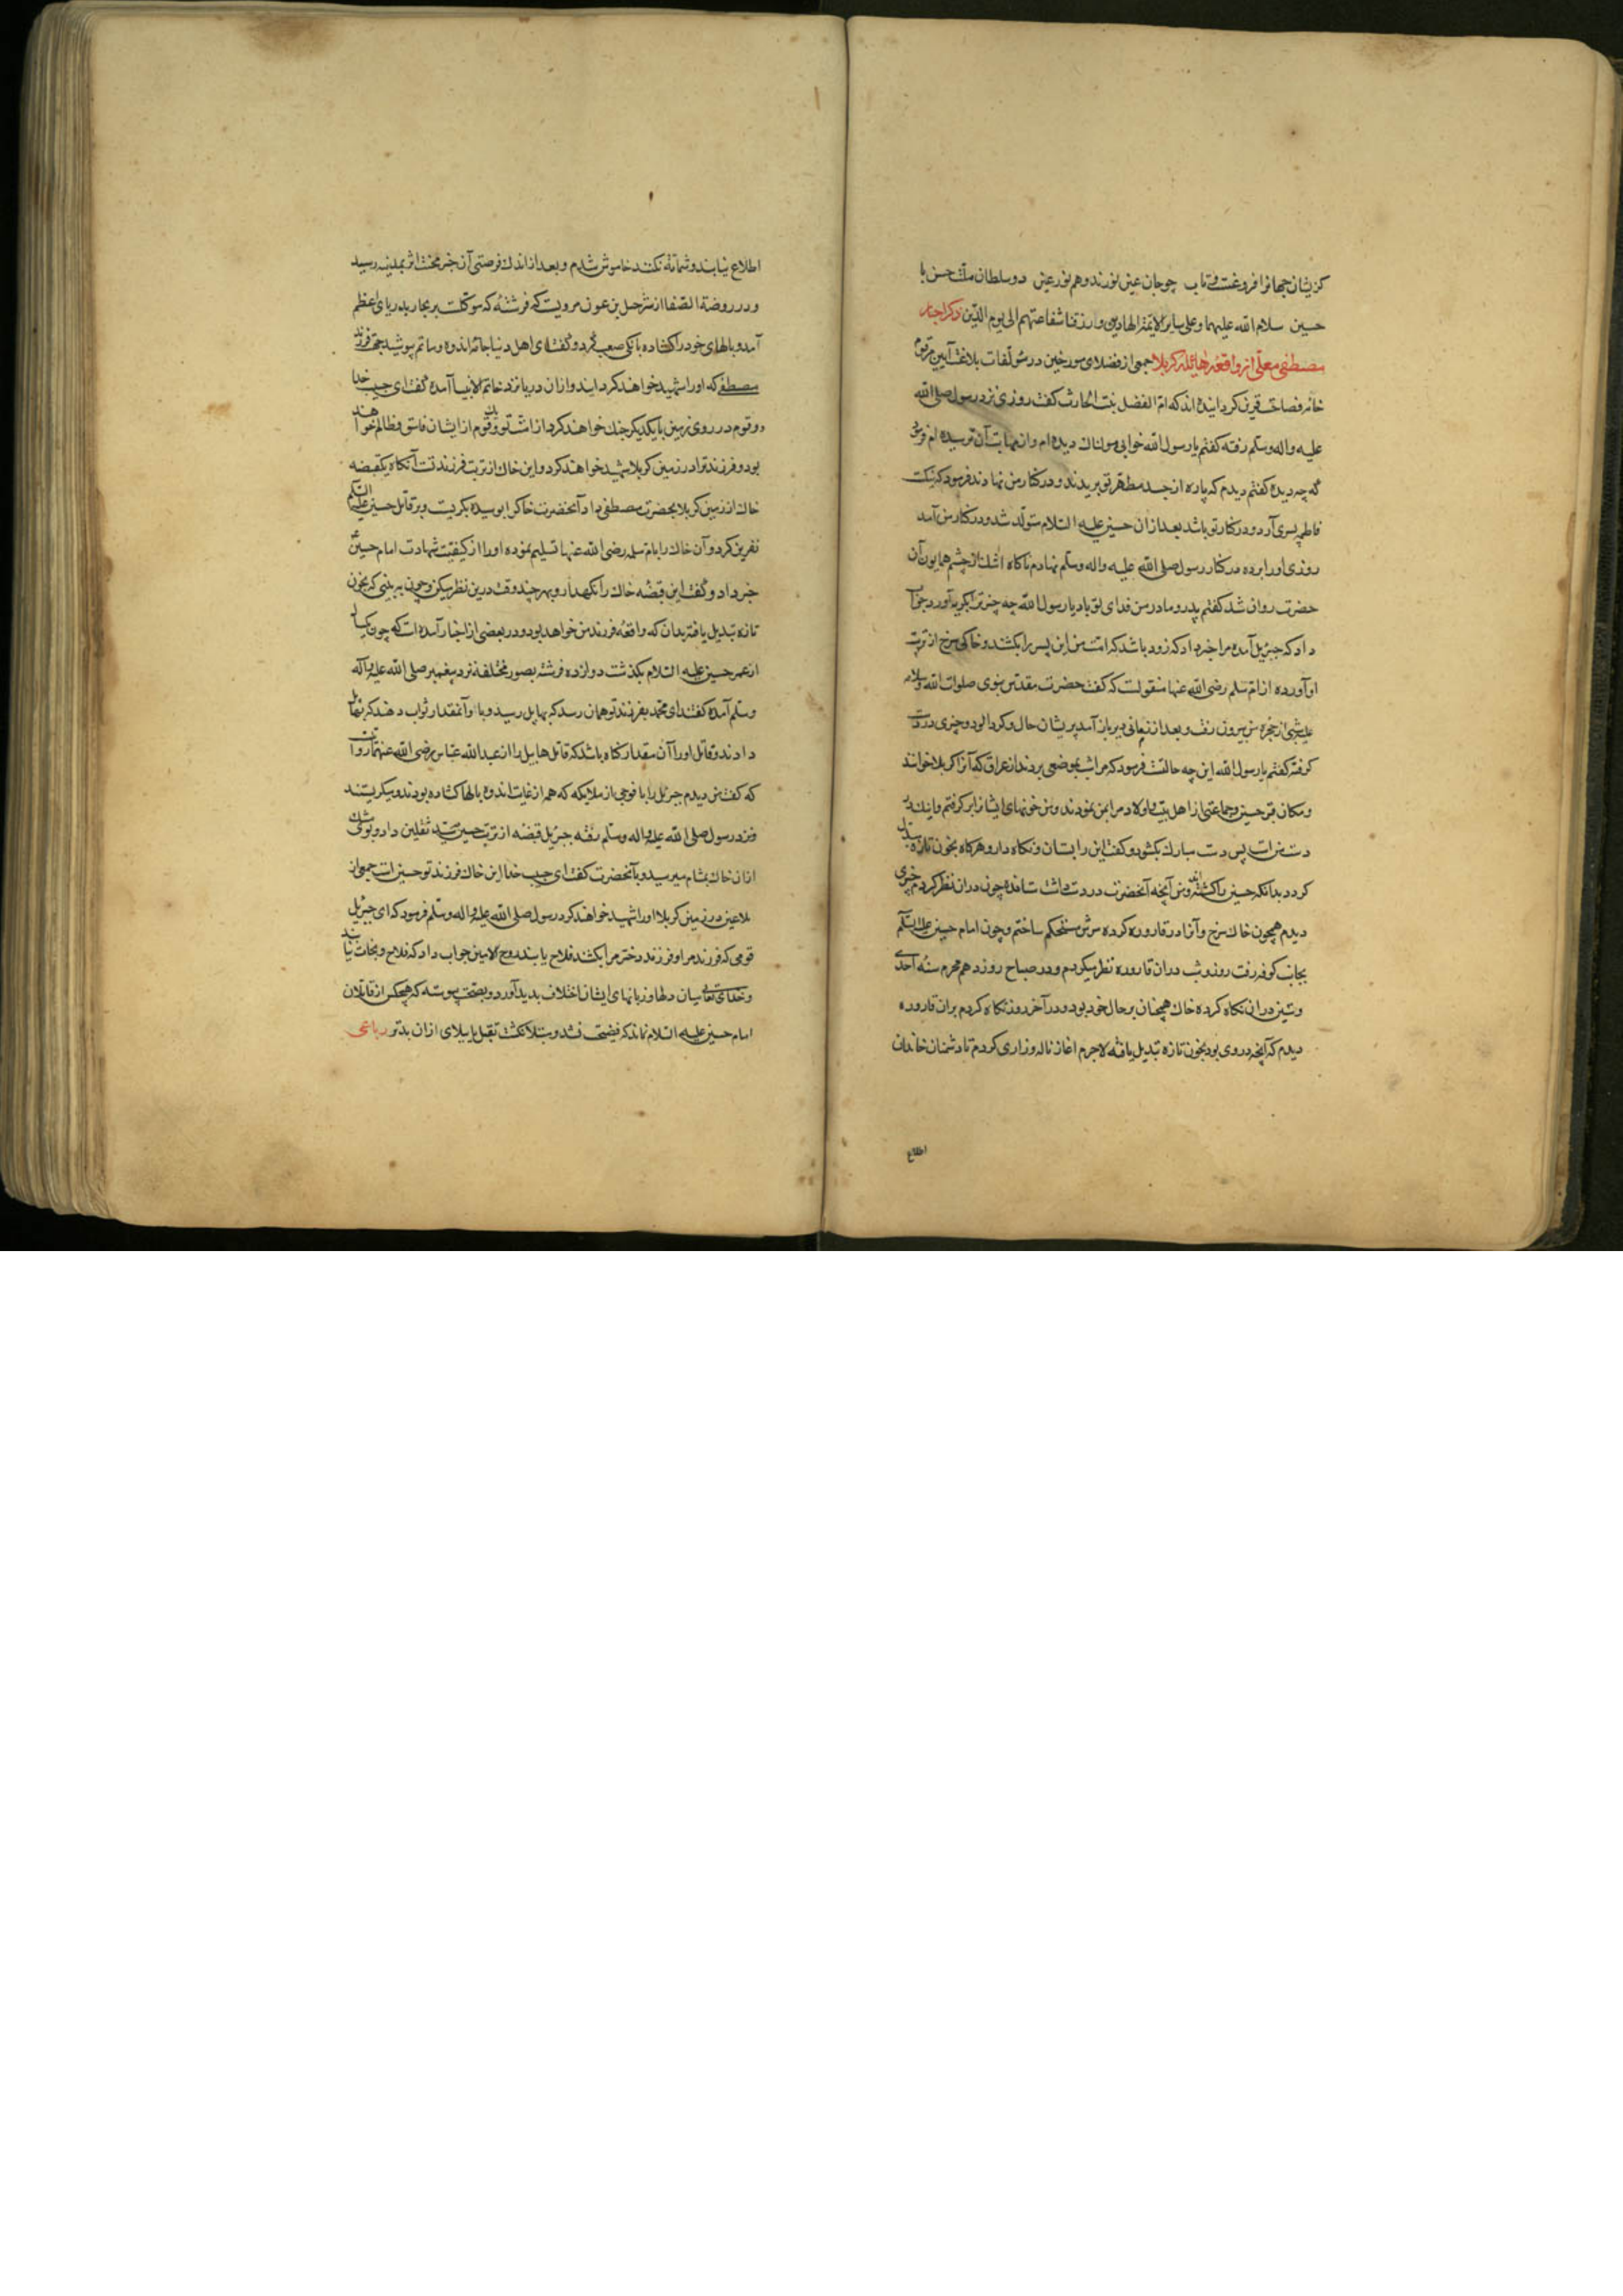 کزیشان جهانرا فروغست و تاب چو جان عین نورند و هم نور عین دو سلطان ملت حسن با
حسین سلام الله علیهما و علی سایر الایمة الهادین و ارزقنا شفاعتهم الی یوم الدین ذکر اخبار
مصطفی معلی از واقعه هایله کربلا جمعی از فضلای مورخین در مؤلفات بلاغت آیین مرقوم
خامه فصاحت قرین کردانیده اند که ام الفضل بنت الحارث کفت روزی نزد رسول صلی الله
علیه و اله وسلم رفته کفتم یارسول الله خوابی هولناک دیده ام و از مهابت آن ترسیده ام فرمود
که چه دیده کفتم دیدم که پاره از جسد مطهر تو بریدند و در کنار من نهادند فرمود که نیکست
فاطمه پسری آرد و در کنار تو باشد بعد از ان حسین علیه السلام متولد شد و در کنار من آمد
روزی اورا برده در کنار رسول صلی الله علیه واله وسلم نهادم ناکاه اشک از چشم همایون آن
حضرت روان شد کفتم پدر و مادر من فدای تو باد یا رسول الله چه چیز ترا بکریه آورد جواب
داد که جبرئیل آمده مرا خبر داد که زود باشد که امت من این پسر را بکشند و خاکی سرخ از تربت
او آورده از ام سلمه رضی الله عنها منقولست که کفت حضرت مقدس نبوی صلوات الله وسلامه
علیه شبی از حجره من بیرون رفت و بعد از زمانی دیر باز آمد پریشان حال و کرد الود و چیزی در دست
کرفته کفتم یا رسول الله این چه حالتست فرمود که مرا شب بموضعی بردند از عراق که آنرا کربلا خوانند
و مکان قتل حسین و جماعتی از اهل بیت و اولاد مرا بمن نمودند و من خونهای ایشانرا بر کرفتم و اینک در
دست منست پس دست مبارک بکشود و کفت این را بستان و نکاه دار و هرکاه بخون تازه مبدل
کردد بدانکه حسین را کشته اند و من آنچه آنحضرت در دست داشت ستانده چون دران نظر کردم چیزی
دیدم همچون خاک سرخ و آنرا در قاروره کرده سرش مستحکم ساختم و چون امام حسین علیه السلم
بجانب کوفه رفت روز و شب دران قاروره نظر میکردم و در صباح روز دهم محرم سنه احدی
و ستین دران نکاه کرده خاک همچنان بر حال خود بود و در آخر روز نکاه کردم بران قاروره
دیدم که آنچه در وی بود بخون تازه تبدیل یافته لاجرم اغاز ناله و زاری کردم تا دشمنان خاندان
اطلاع
اطلاع نیابند و شماتة نکنند خاموش شدم و بعد از اندک فرصتی آن خبر محنت اثر بمدینه رسید
و در روضة الصفا از شرحبیل بن عون مرویست که فرشته که موکلست بر بحار بدریای اعظم
آمد و بالهای خود را کشاده بانکی صعب کرد و کفت ای اهل دنیا جامه اندوه و ماتم پوشید جهة فرزند
مصطفی که اورا شهید خواهند کردانید و ازان دریا نزد خاتم الانبیا آمده کفت ای حبیب خدا
دو قوم در روی زمین با یکدیکر جنک خواهند کرد از امت تو و یک قوم از ایشان فاسق و ظالم خواهند
بود و فرزند ترا در زمین کربلا شهید خواهند کرد و این خاک از تربت فرزند تست آنکاه یکقبضه
خاک از زمین کربلا بحضرت مصطفی داد آنحضرت خاک را بوسیده بکریست و بر قاتل حسین علیه السلم
نفرین کرد و آن خاک را بام سلمه رضی الله عنها تسلیم نموده اورا از کیفیت شهادت امام حسین
خبر داد و کفت این قبضه خاک را نکهدار و بهر چند وقت درین نظر میکن و چون به بینی که بخون
تازه تبدیل یافته بدان که واقعه فرزند من خواهد بود و در بعضی از اخبار آمده است که چون یکسال
از عمر حسین علیه السلام بکذشت دوازده فرشته بصور مختلفه نزد پیغمبر صلی الله علیه واله
وسلم آمده کفتند ای محمد بفرزند تو همان رسد که بهابیل رسید و باو آنمقدار ثواب دهند که بهابیل
دادند و قاتل اورا آن مقدار کناه باشد که قاتل هابیل را از عبدالله عباس رضی الله عنهما روایتست
که کفت من دیدم جبرئیل را با فوجی از ملایکه که همه از غایت اندوه بالها کشاده بودند و میکریستند
و نزد رسول صلی الله علیه و اله وسلم رفته جبرئیل قبضه از تربت حسین بسید ثقلین داد و بوی مشک
ازان خاک بمشام میرسید و بآنحضرت کفت ای حبیب خدا این خاک فرزند تو حسین است جمعی از
ملاعین در زمین کربلا اورا شهید خواهند کرد رسول صلی الله علیه واله وسلم فرمود که ای جبرئیل
قومی که فرزند مرا و فرزند دختر مرا بکشند فلاح یابند روح الامین جواب داد که فلاح و نجات نیابند
و خدای تعالی میان دلها و زبانهای ایشان اختلاف بدید آورد و بصحت پیوسته که هیچکس از قاتلان
امام حسین علیه السلام نماند که فضیحت نشد و مبتلا نکشت بقتل یا ببلای ازان بدتر رباعی